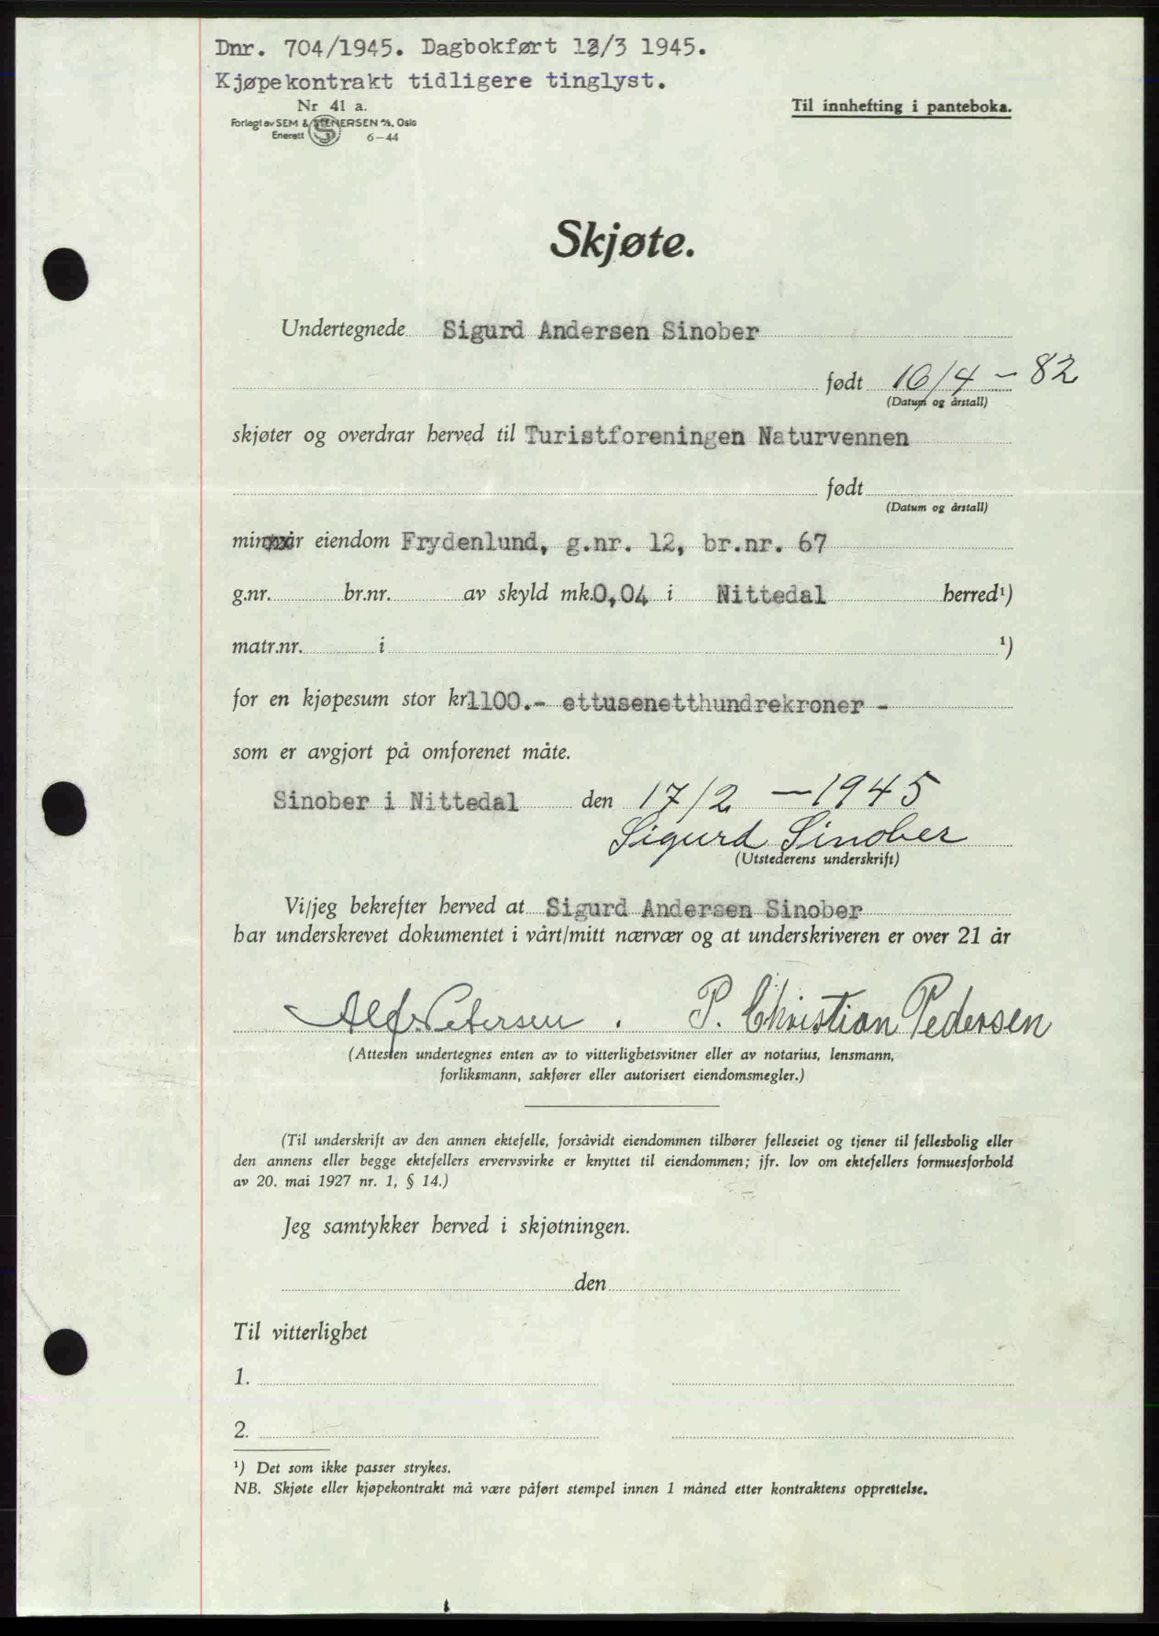 Dnr. 704/1945. Dagbokført 13/3 1945.
Kjøpekontrakt tidligere tinglyst.
Nr 41 a.
Til innhefting i panteboka.
Forlagt av SEM & STENERSEN A/S, Oslo
Enerett 6-44
Skjøte.
Undertegnede Sigurd Andersen Sinober
født 16/4 - 82
(Datum og årstall)
skjøter og overdrar herved til Turistforeningen Naturvennen
født
(Datum og årstall)
min eiendom Frydenlund, g.nr. 12, br.nr. 67
g.nr. br.nr. av skyld mk. 0,04 i Nittedal herred¹)
matr.nr. i ¹)
for en kjøpesum stor kr 1100.- ettusenetthundrekroner -
som er avgjort på omforenet måte.
Sinober i Nittedal den 17/2 - 1945
Sigurd Sinober
(Utstederens underskrift)
Vi/jeg bekrefter herved at Sigurd Andersen Sinober
har underskrevet dokumentet i vårt/mitt nærvær og at underskriveren er over 21 år
Alf Petersen. P. Christian Pedersen
(Attesten undertegnes enten av to vitterlighetsvitner eller av notarius, lensmann,
forliksmann, sakfører eller autorisert eiendomsmegler.)
(Til underskrift av den annen ektefelle, forsåvidt eiendommen tilhører felleseiet og tjener til fellesbolig eller
den annens eller begge ektefellers ervervsvirke er knyttet til eiendommen; jfr. lov om ektefellers formuesforhold
av 20. mai 1927 nr. 1, § 14.)
Jeg samtykker herved i skjøtningen.
den
Til vitterlighet
1.
2.
¹) Det som ikke passer strykes.
NB. Skjøte eller kjøpekontrakt må være påført stempel innen 1 måned etter kontraktens opprettelse.